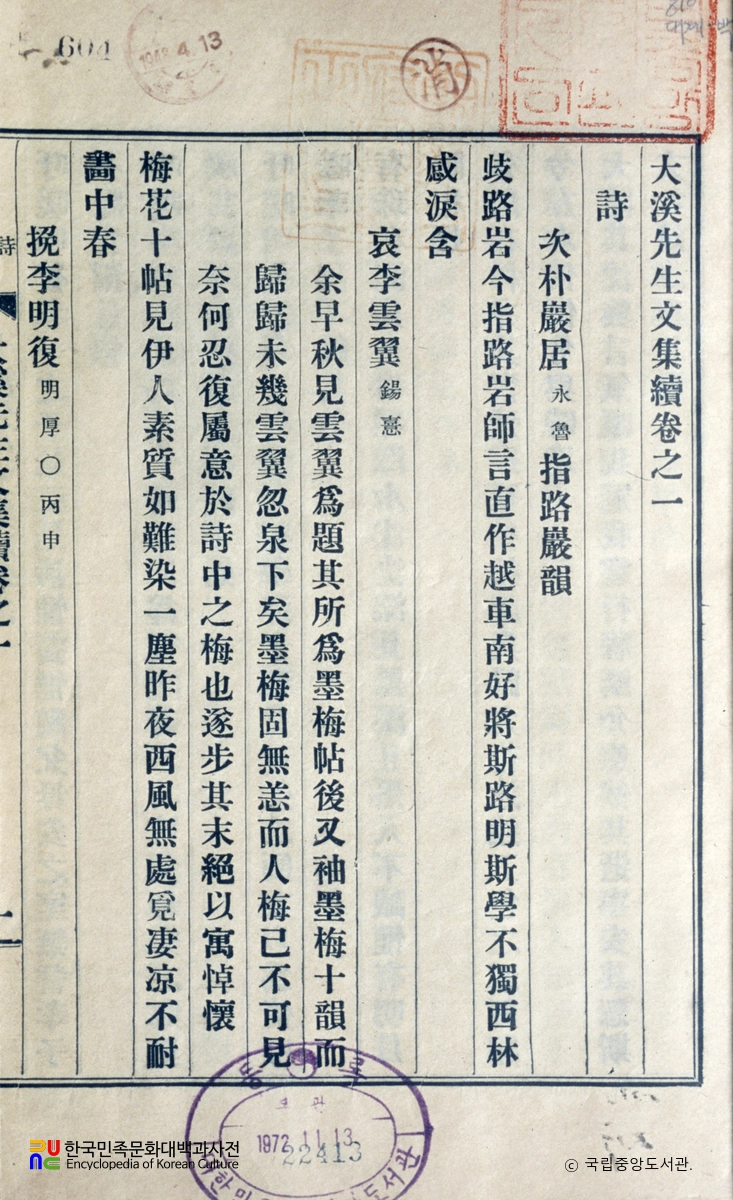 604
1972.4.13
消
大溪先生文集續卷之一
詩
次朴巖居永魯指路巖韻
歧路岩今指路岩師言直作越車南好將斯路明斯學不獨西林
感淚含
哀李雲翼鍚憙
余早秋見雲翼爲題其所爲墨梅帖後又袖墨梅十韻而
歸歸未幾雲翼忽泉下矣墨梅固無恙而人梅已不可見
奈何忍復屬意於詩中之梅也遂步其末絕以寓悼懷
梅花十帖見伊人素質如難染一塵昨夜西風無處覓凄凉不耐
畵中春
挽李明復明厚○丙申
詩
등록
1972.11.13
22413
한국민족문화대백과사전
Encyclopedia of Korean Culture
© 국립중앙도서관.